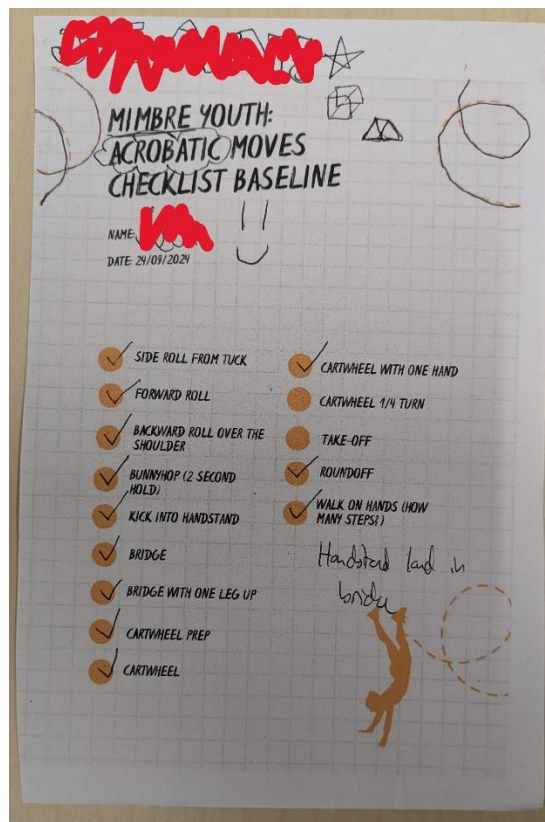 MIMBRE YOUTH:
ACROBATIC MOVES
CHECKLIST BASELINE
NAME:
DATE: 24/09/2024
SIDE ROLL FROM TUCK
FORWARD ROLL
BACKWARD ROLL OVER THE
SHOULDER
BUNNYHOP (2 SECOND
HOLD)
KICK INTO HANDSTAND
BRIDGE
BRIDGE WITH ONE LEG UP
CARTWHEEL PREP
CARTWHEEL
CARTWHEEL WITH ONE HAND
CARTWHEEL 1/4 TURN
TAKE-OFF
ROUNDOFF
WALK ON HANDS (HOW
MANY STEPS?)
Handstand land in
bridge